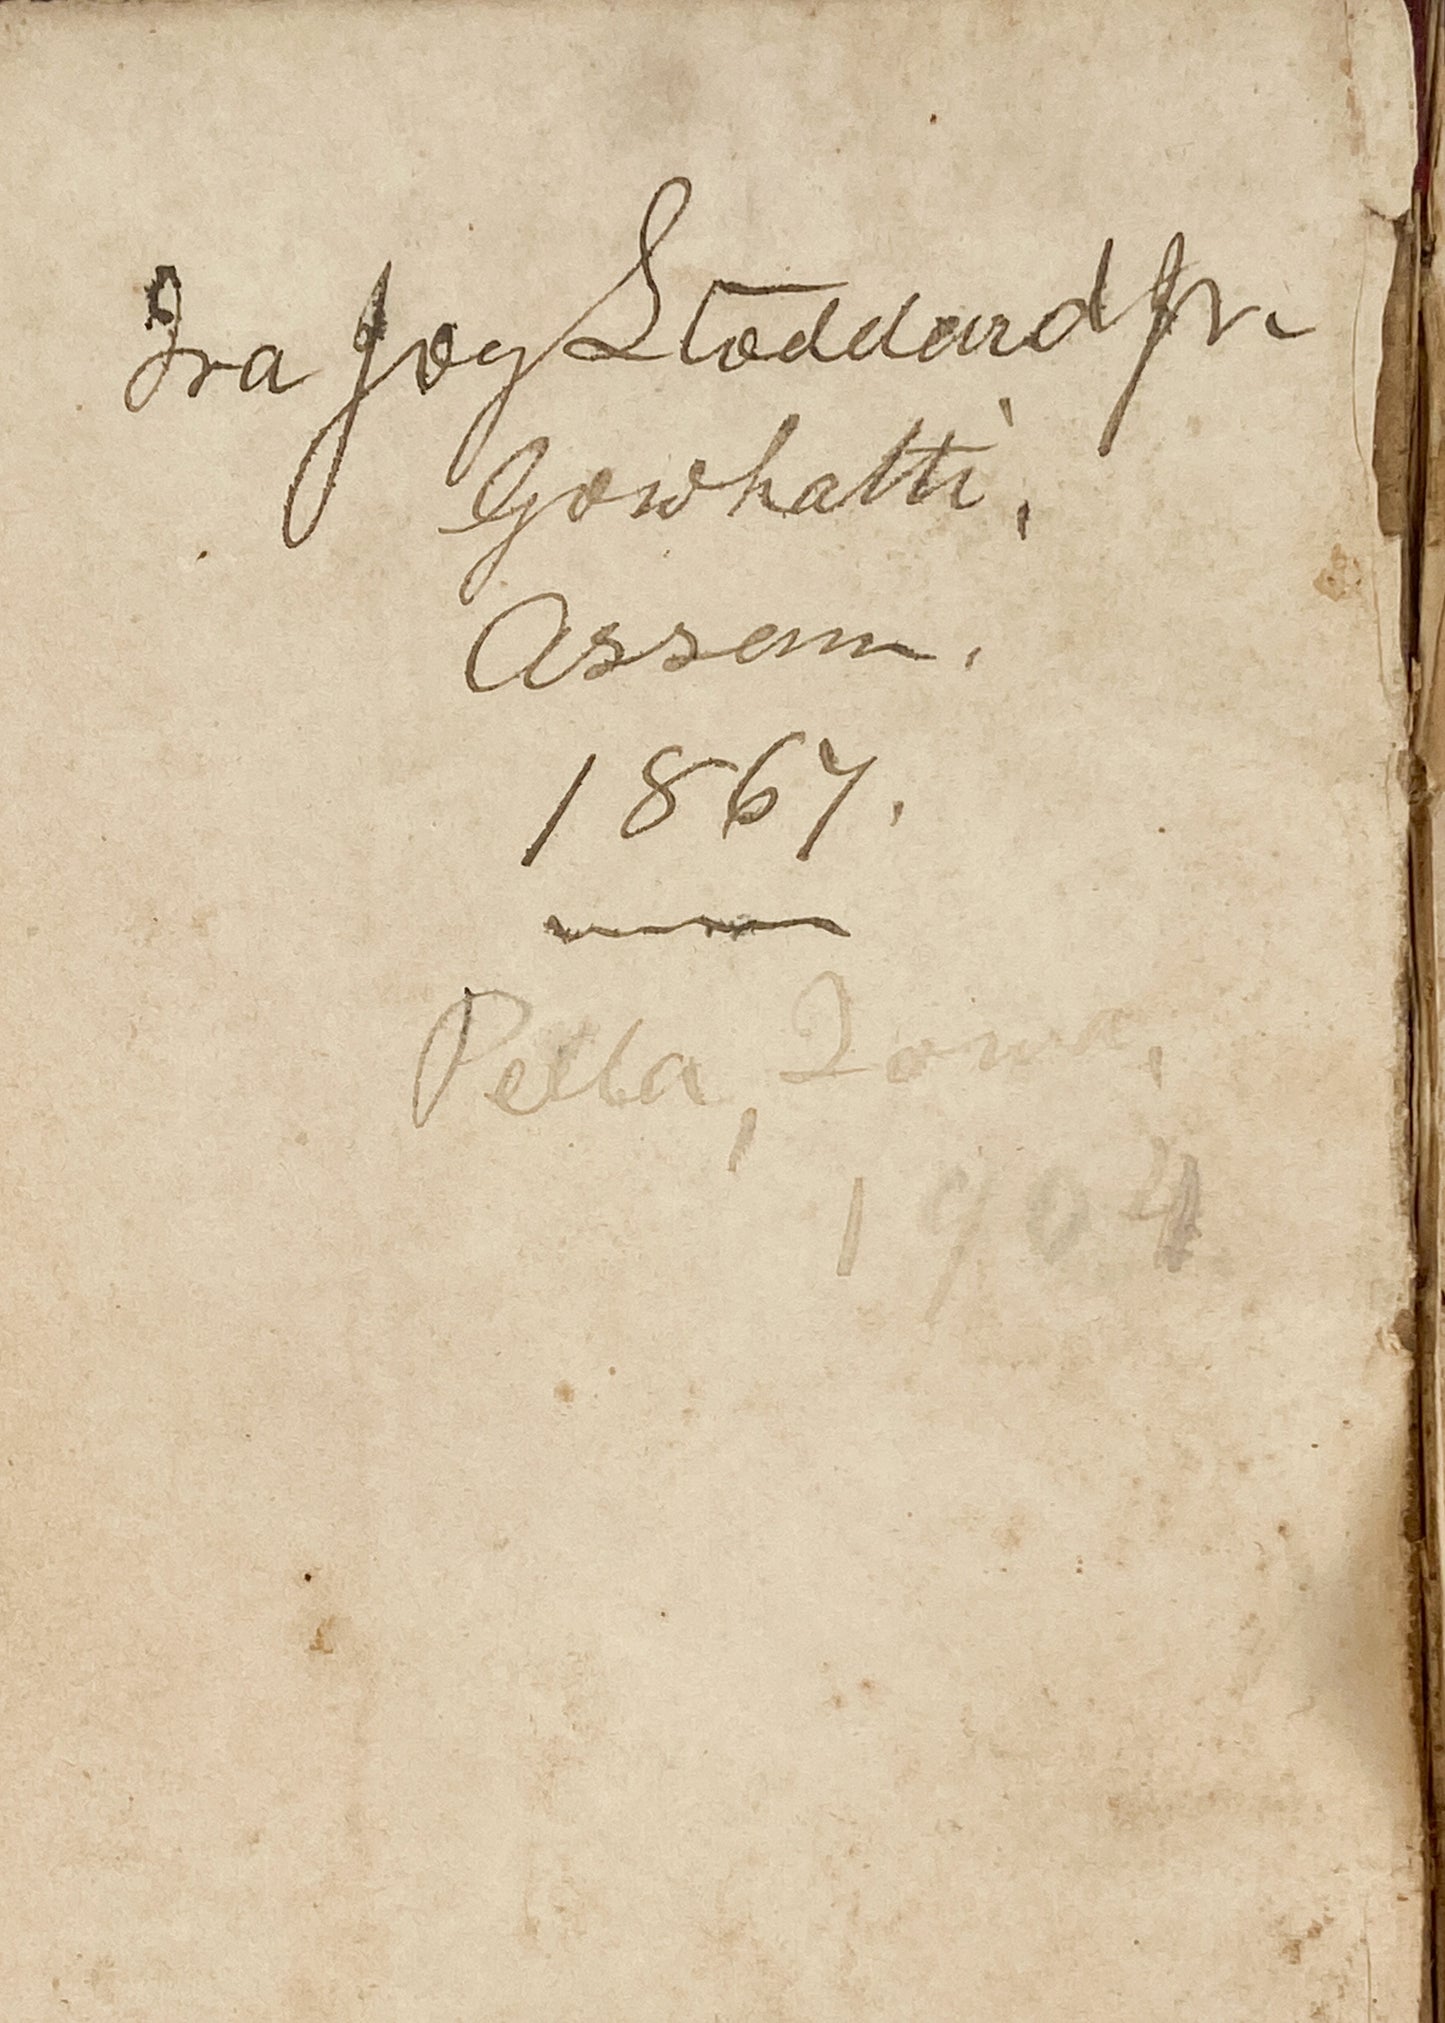 Ira Joy Stoddard Jr.
Gowhatti,
Assam.
1867.
Pella, Iowa,
1904